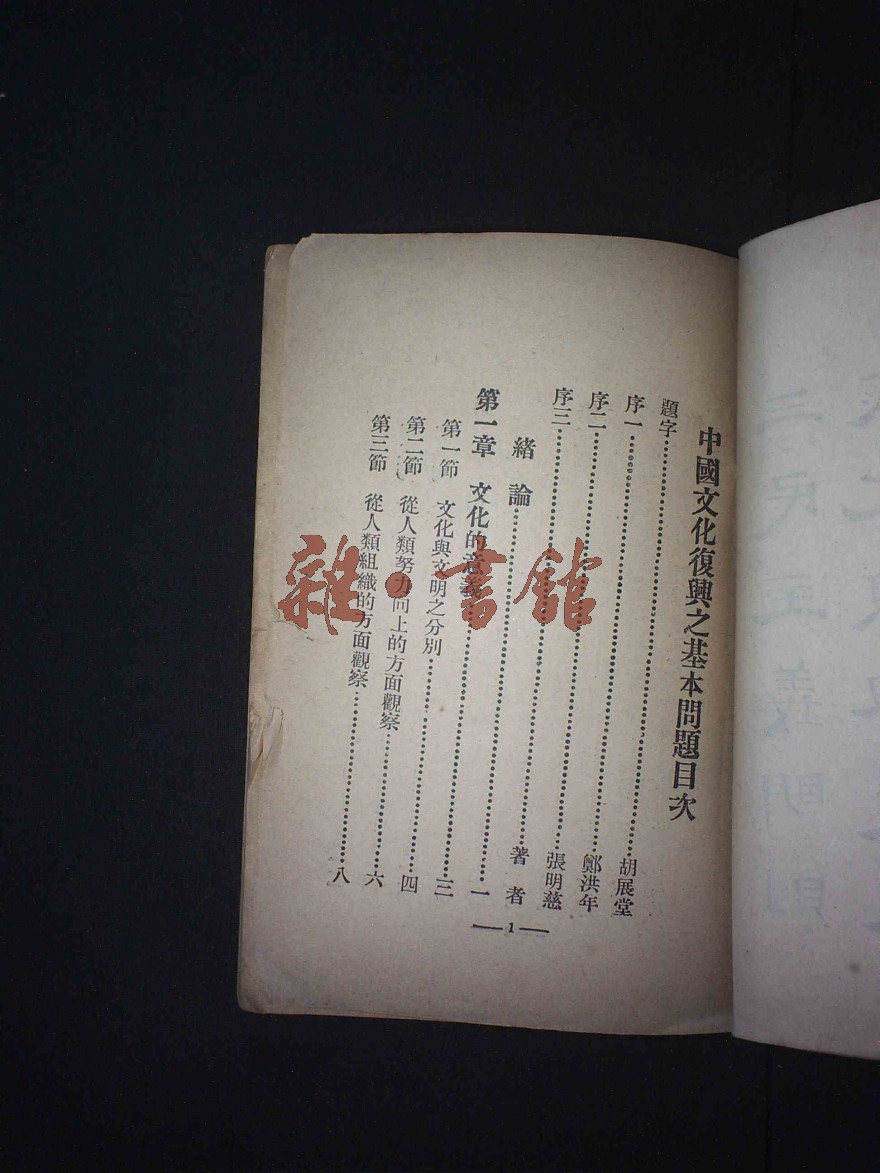 中國文化復興之基本問題目次
題字……胡展堂
序一……鄭洪年
序二……張明慈
序三……著者
緒論……一
第一章 文化的意義……三
第一節 文化與文明之分別……四
第二節 從人類努力向上的方面觀察……六
第三節 從人類組織的方面觀察……八
— 1 —
雜·書館